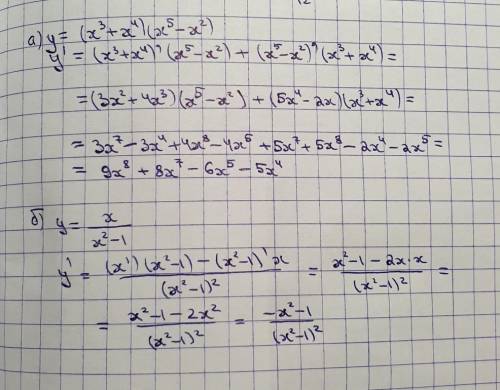 а) y = (x³ + x⁴)(x⁵ − x²)
y' = (x³ + x⁴)' (x⁵ − x²) + (x⁵ − x²)' (x³ + x⁴) =
= (3x² + 4x³)(x⁵ − x²) + (5x⁴ − 2x)(x³ + x⁴) =
= 3x⁷ − 3x⁴ + 4x⁸ − 4x⁵ + 5x⁷ + 5x⁸ − 2x⁴ − 2x⁵ =
= 9x⁸ + 8x⁷ − 6x⁵ − 5x⁴
б) y = x / (x² − 1)
y' = ((x')(x² − 1) − (x² − 1)' x) / (x² − 1)² = (x² − 1 − 2x · x) / (x² − 1)² =
= (x² − 1 − 2x²) / (x² − 1)² = (−x² − 1) / (x² − 1)²